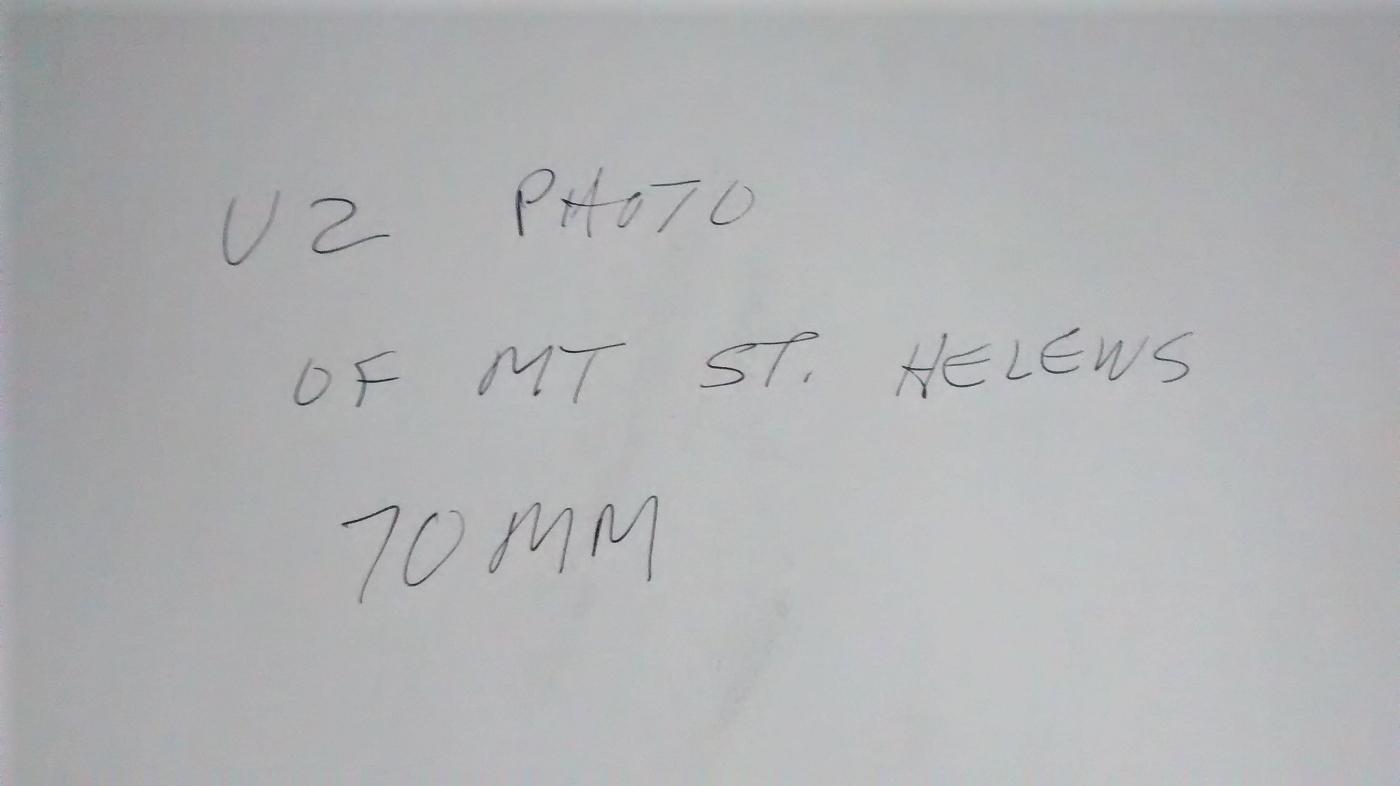 U2 PHOTO
OF MT ST. HELENS
70MM